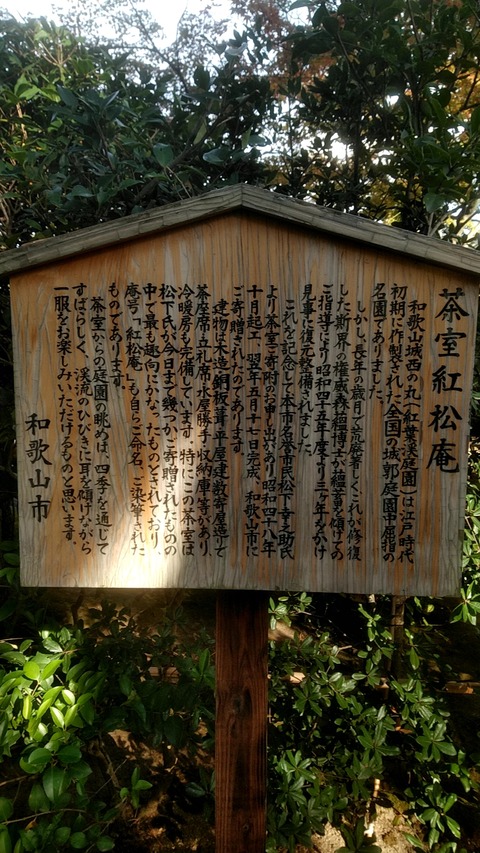 茶室紅松庵
和歌山城西の丸(紅葉渓庭園)は江戸時代
初期に作製された全国の城郭庭園中屈指の
名園でありました
しかし長年の歳月で荒廃著しくこれが修復
した斯界の権威森蘊博士が蘊蓄を傾けての
ご指導により昭和四十五年度より三ヶ年をかけ
見事に復元整備されました
これを記念して本市名誉市民松下幸之助氏
より茶室ご寄附のお申し出があり昭和四十八年
十月起工、翌年五月十七日完成、和歌山市に
ご寄贈されたのであります
建物は木造銅板葺平屋建数寄屋造りで
茶座席、立礼席、水屋、勝手、収納庫等があり、
冷暖房も完備しています。特にこの茶室は
松下氏が今日まで幾つかご寄贈されたものの
中で最も趣向にかなったものとされており、
庵号「紅松庵」も自らご命名、ご染筆された
ものであります。
茶室からの庭園の眺めは、四季を通じて
すばらしく、渓流のひびきに耳を傾けながら
一服をお楽しみいただけるものと思います。
和歌山市